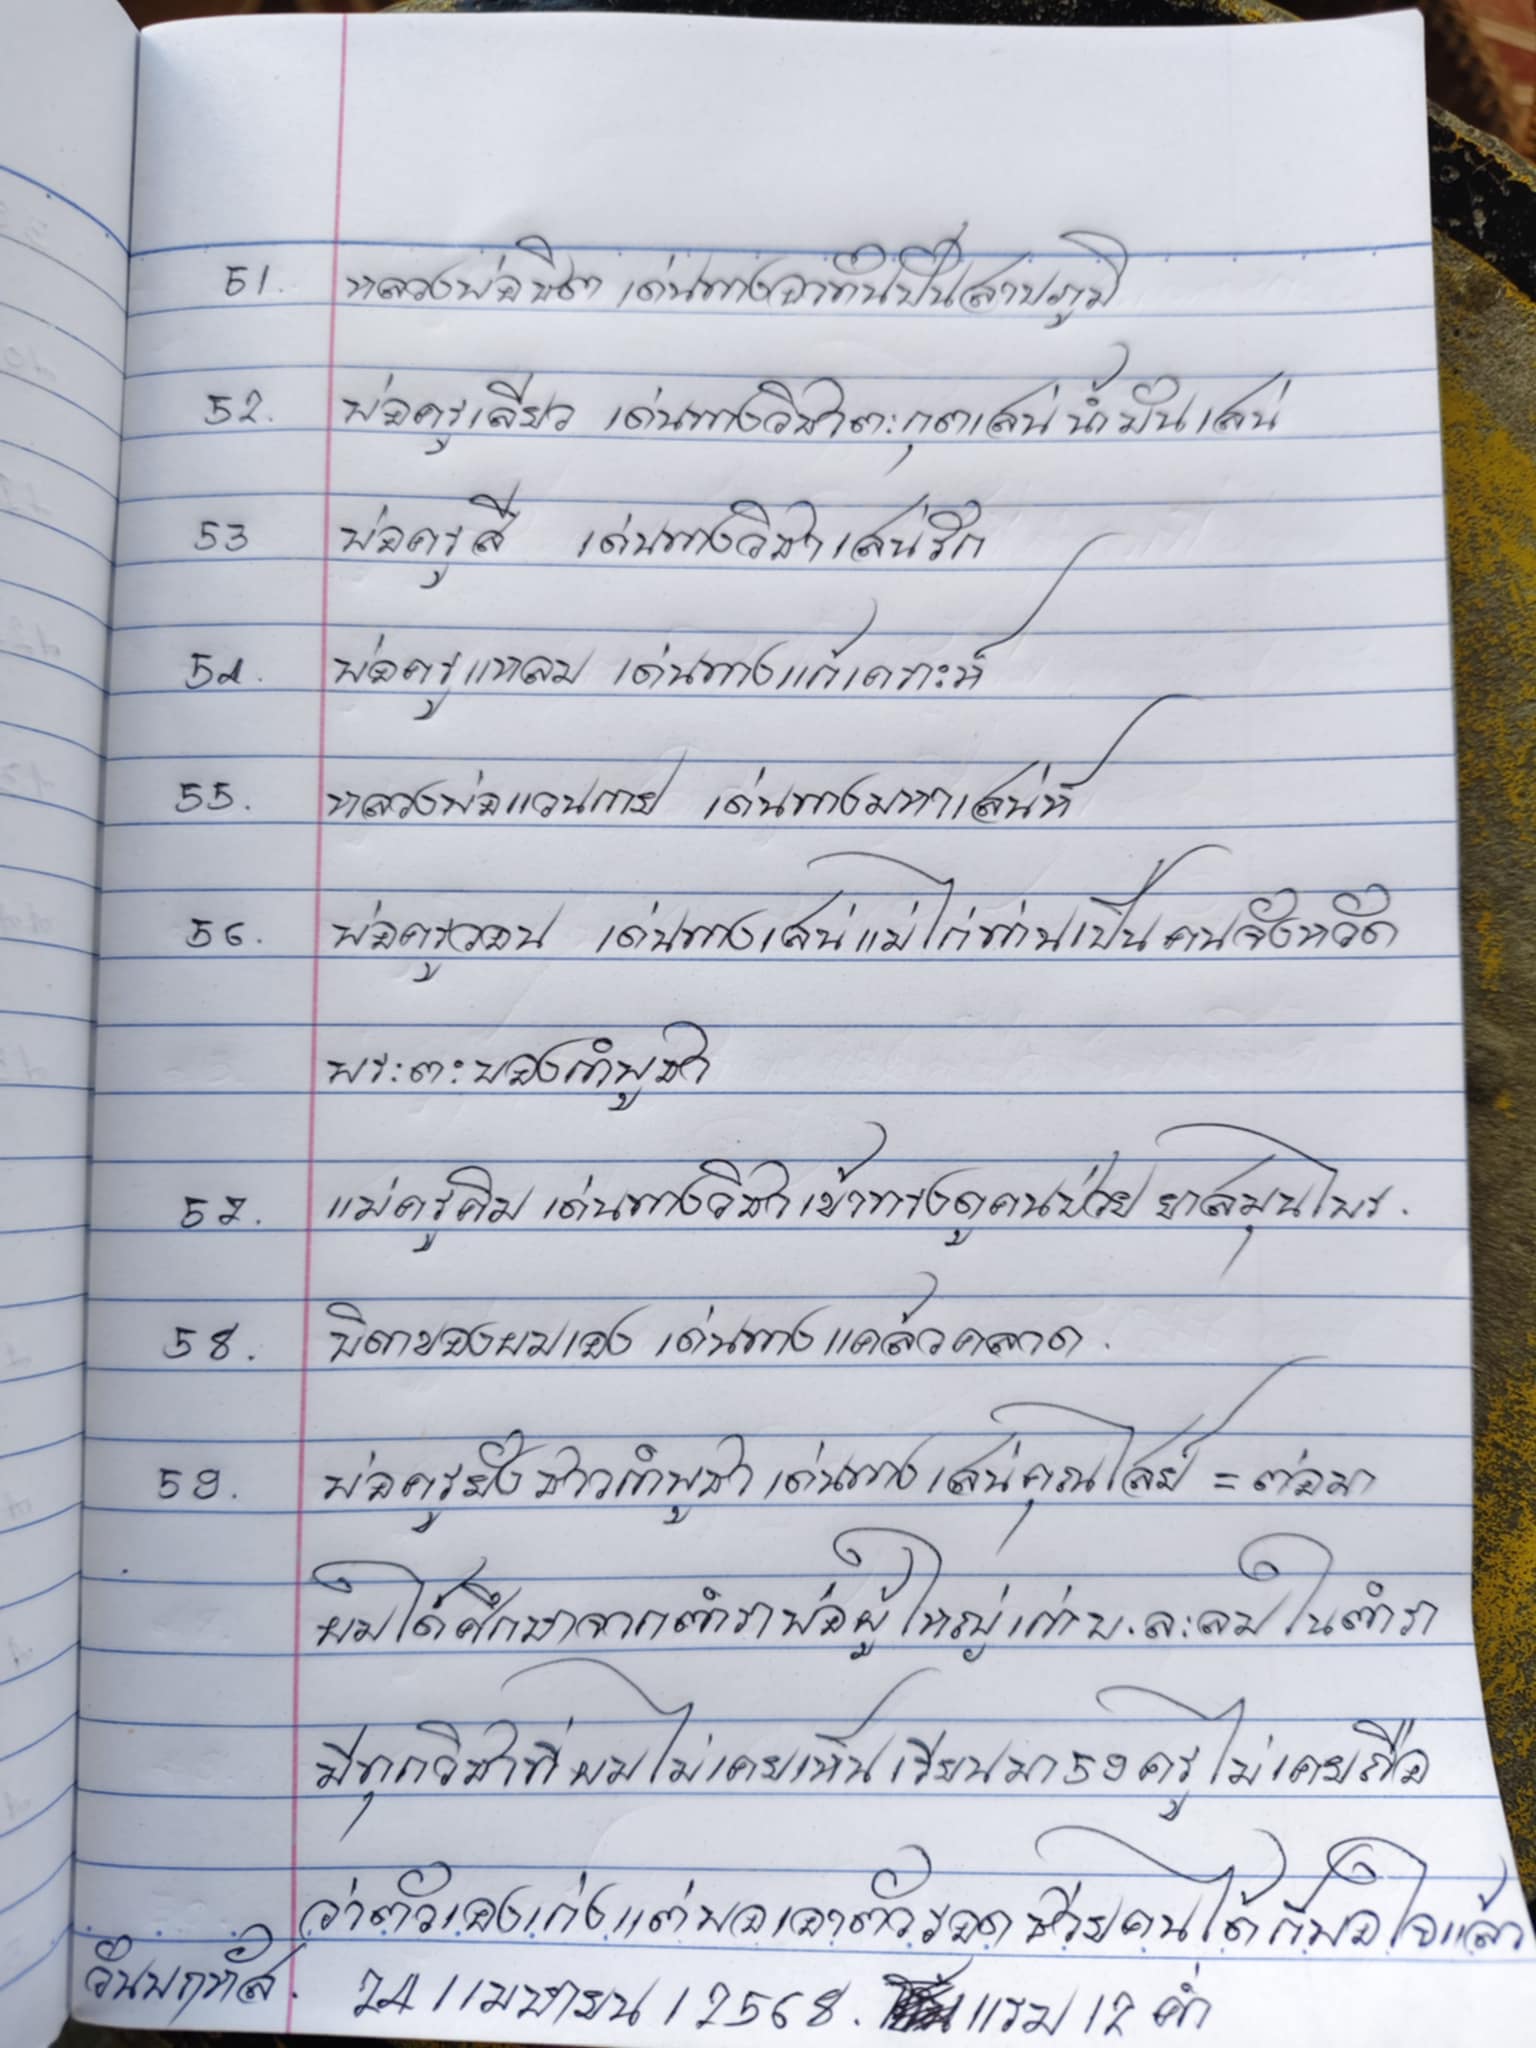 51. หลวงพ่อบิตา เด่นทางอาทันปืนลาบภูมิ
52. พ่อครูเลียว เด่นทางวิชาตะกุดเสน่น้ำมันเสน่
53 พ่อครูสี เด่นทางวิชาเสน่รัก
54. พ่อครูแหลม เด่นทางแก้เคราะห์
55. หลวงพ่อแวนกาย เด่นทางมหาเสน่ห์
56. พ่อครูวอน เด่นทางเสน่แม่ไก่ท่านเป็นคนจังหวัด
พระตะบองกำพูชา
57. แม่ครูคิม เด่นทางวิชาเข้าทรงดูคนป่วยยาสมุนไพร.
58. บิดาของผมเอง เด่นทางแคล้วคลาด.
59. พ่อครูยังชาวกำพูชา เด่นทางเสน่คุณไสย์ = ต่อมา
ผมได้ศึกษาจากตำราพ่อผู้ใหญ่เก่าบ.ละลมในตำรา
มีทุกวิชาที่ผมไม่เคยเห็นเรียนมา 59 ครูไม่เคยถือ
ว่าตัวเองเก่งแต่พอเอาตัวรอดช่วยคนได้ก็พอใจแล้ว
วันพฤหัส. 24 / เมษายน / 2568. แรม 12 ค่ำ